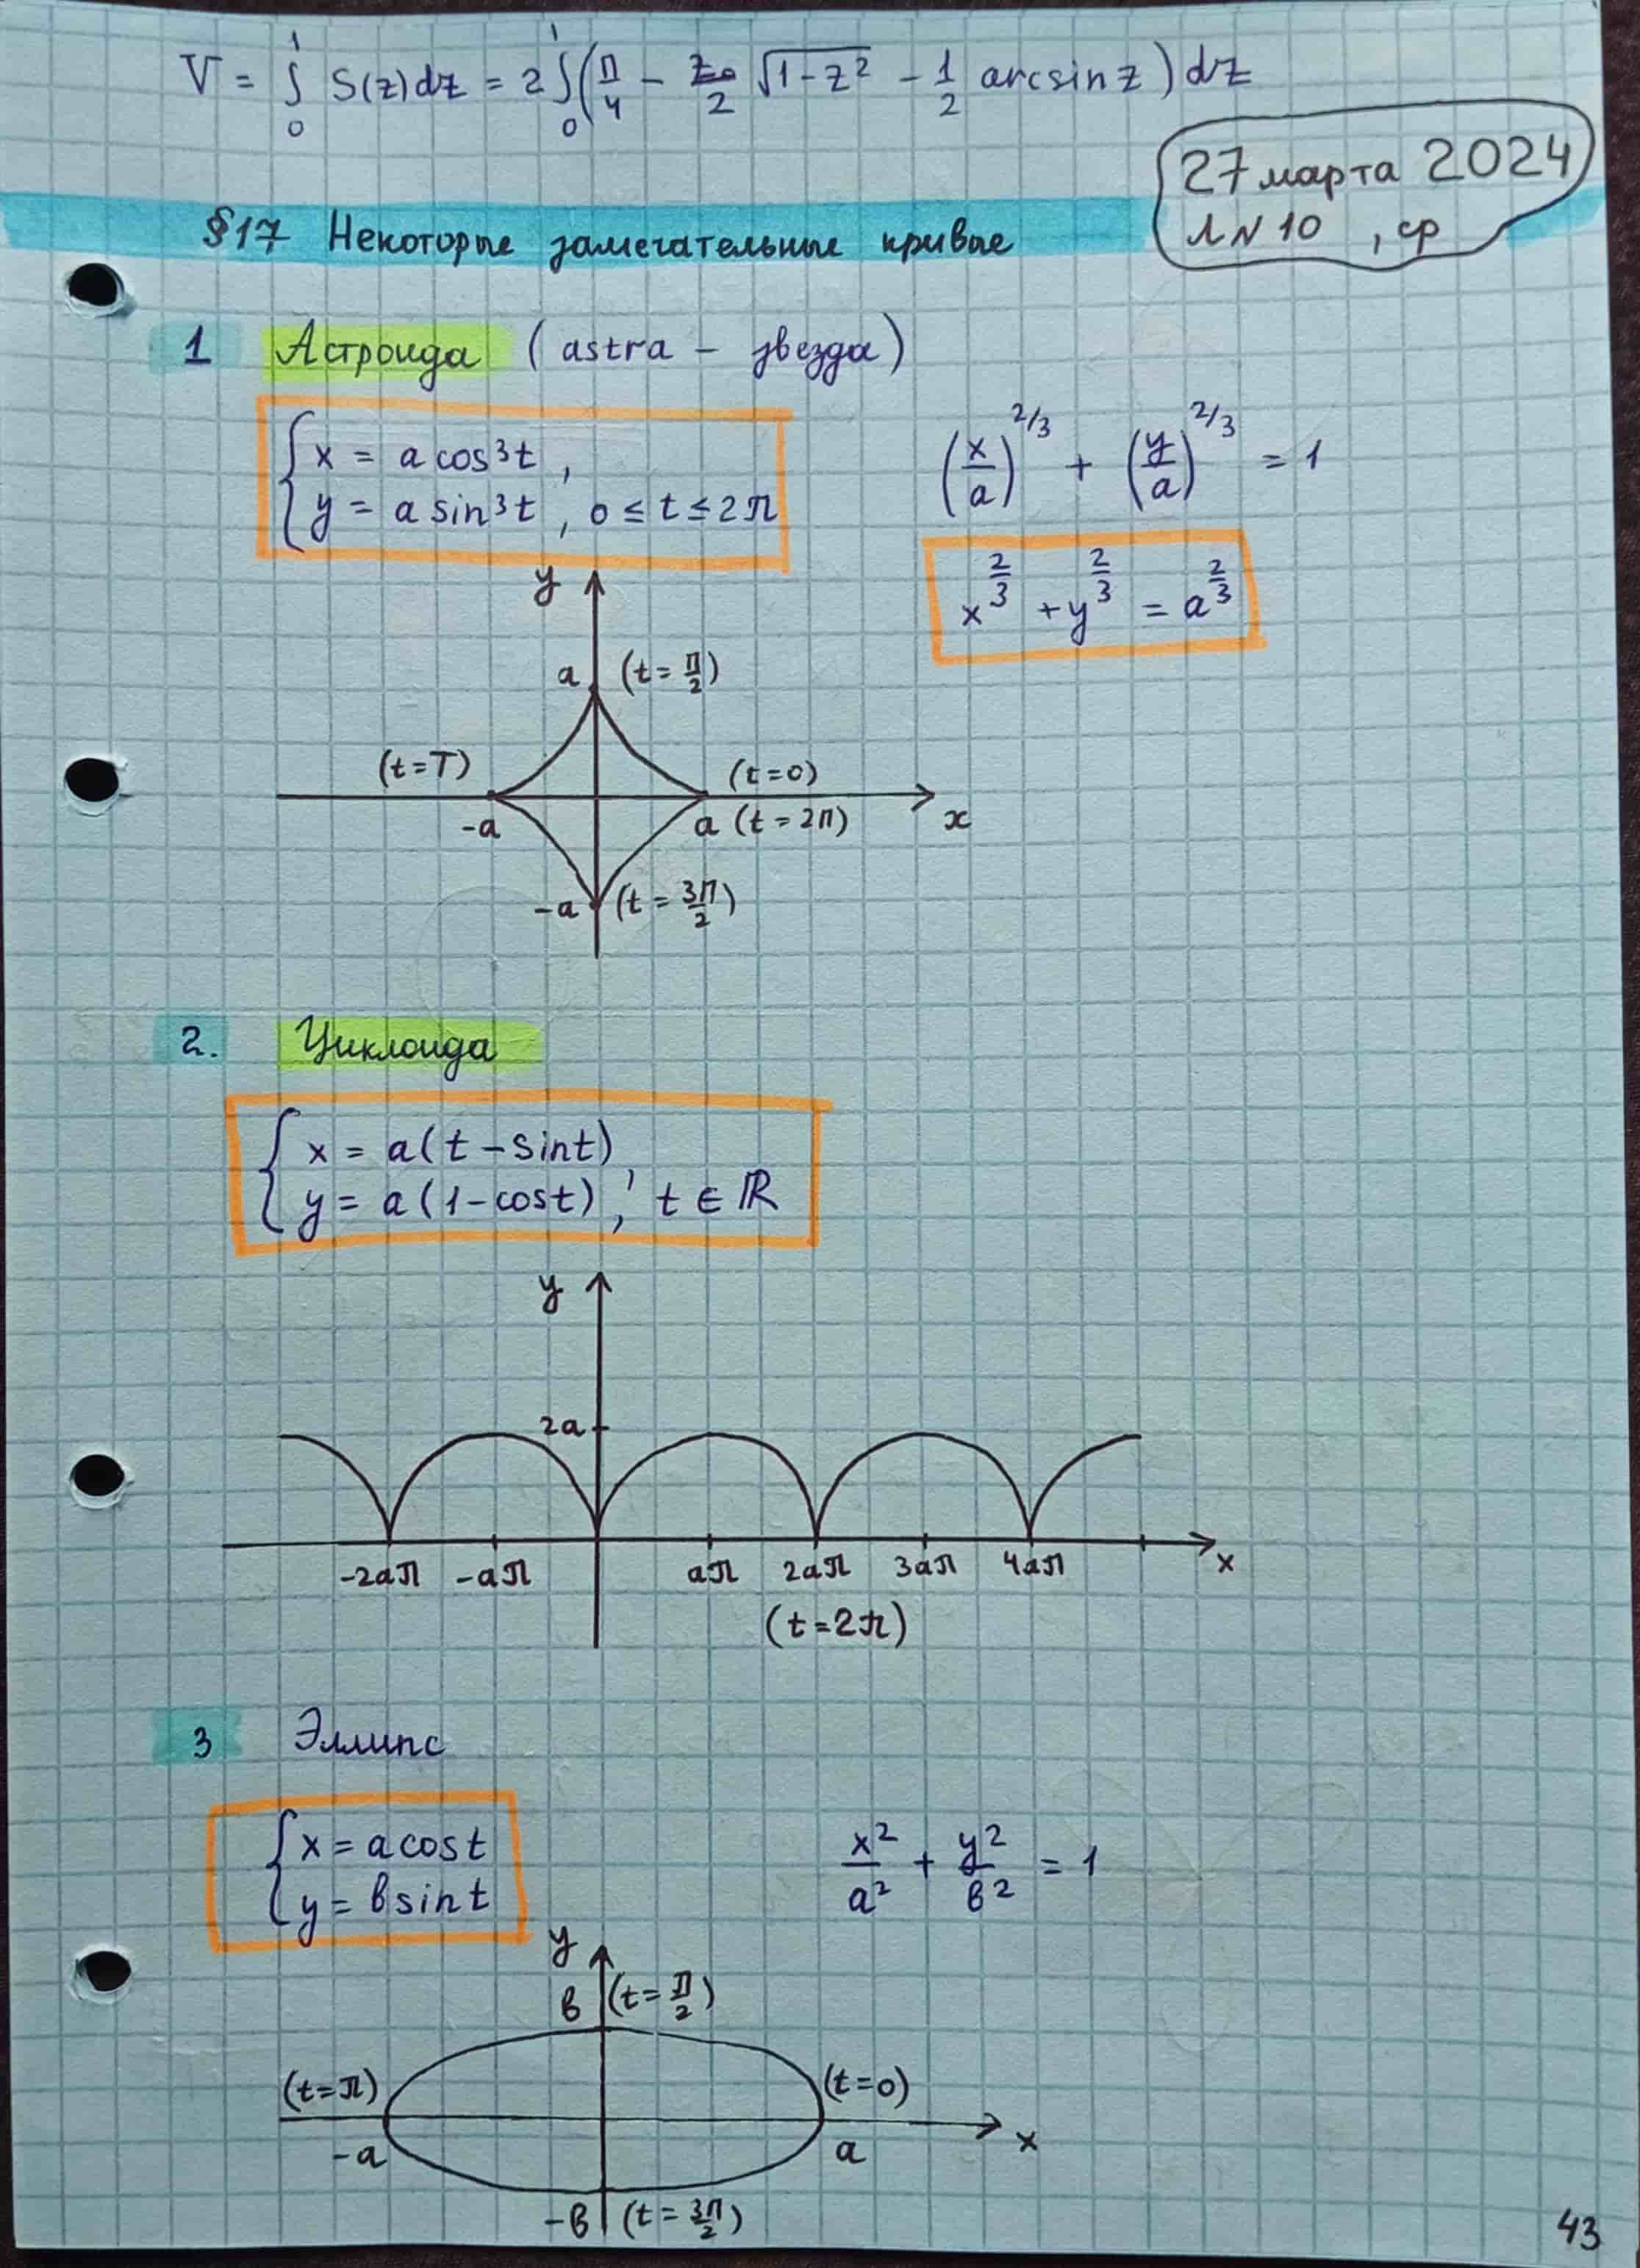 V = ∫₀¹ S(z)dz = 2∫₀¹(π/4 − z/2 √(1−z²) − 1/2 arcsin z) dz
27 марта 2024
Л N 10 , ср
§17 Некоторые замечательные кривые
1 Астроида (astra – звезда)
{ x = a cos³t ,
y = a sin³t , 0 ≤ t ≤ 2π
(x/a)^2/3 + (y/a)^2/3 = 1
x^2/3 + y^2/3 = a^2/3
y
a (t = π/2)
(t=T) (t=0)
-a a (t = 2π) x
-a (t = 3π/2)
2. Циклоида
{ x = a(t – sint) ,
y = a(1–cost) , t ∈ ℝ
y
2a
-2aπ -aπ aπ 2aπ 3aπ 4aπ x
(t=2π)
3 Эллипс
{ x = a cost
y = b sint
x²/a² + y²/b² = 1
y
b (t = π/2)
(t=π) (t=0)
-a a x
-b (t = 3π/2)
43